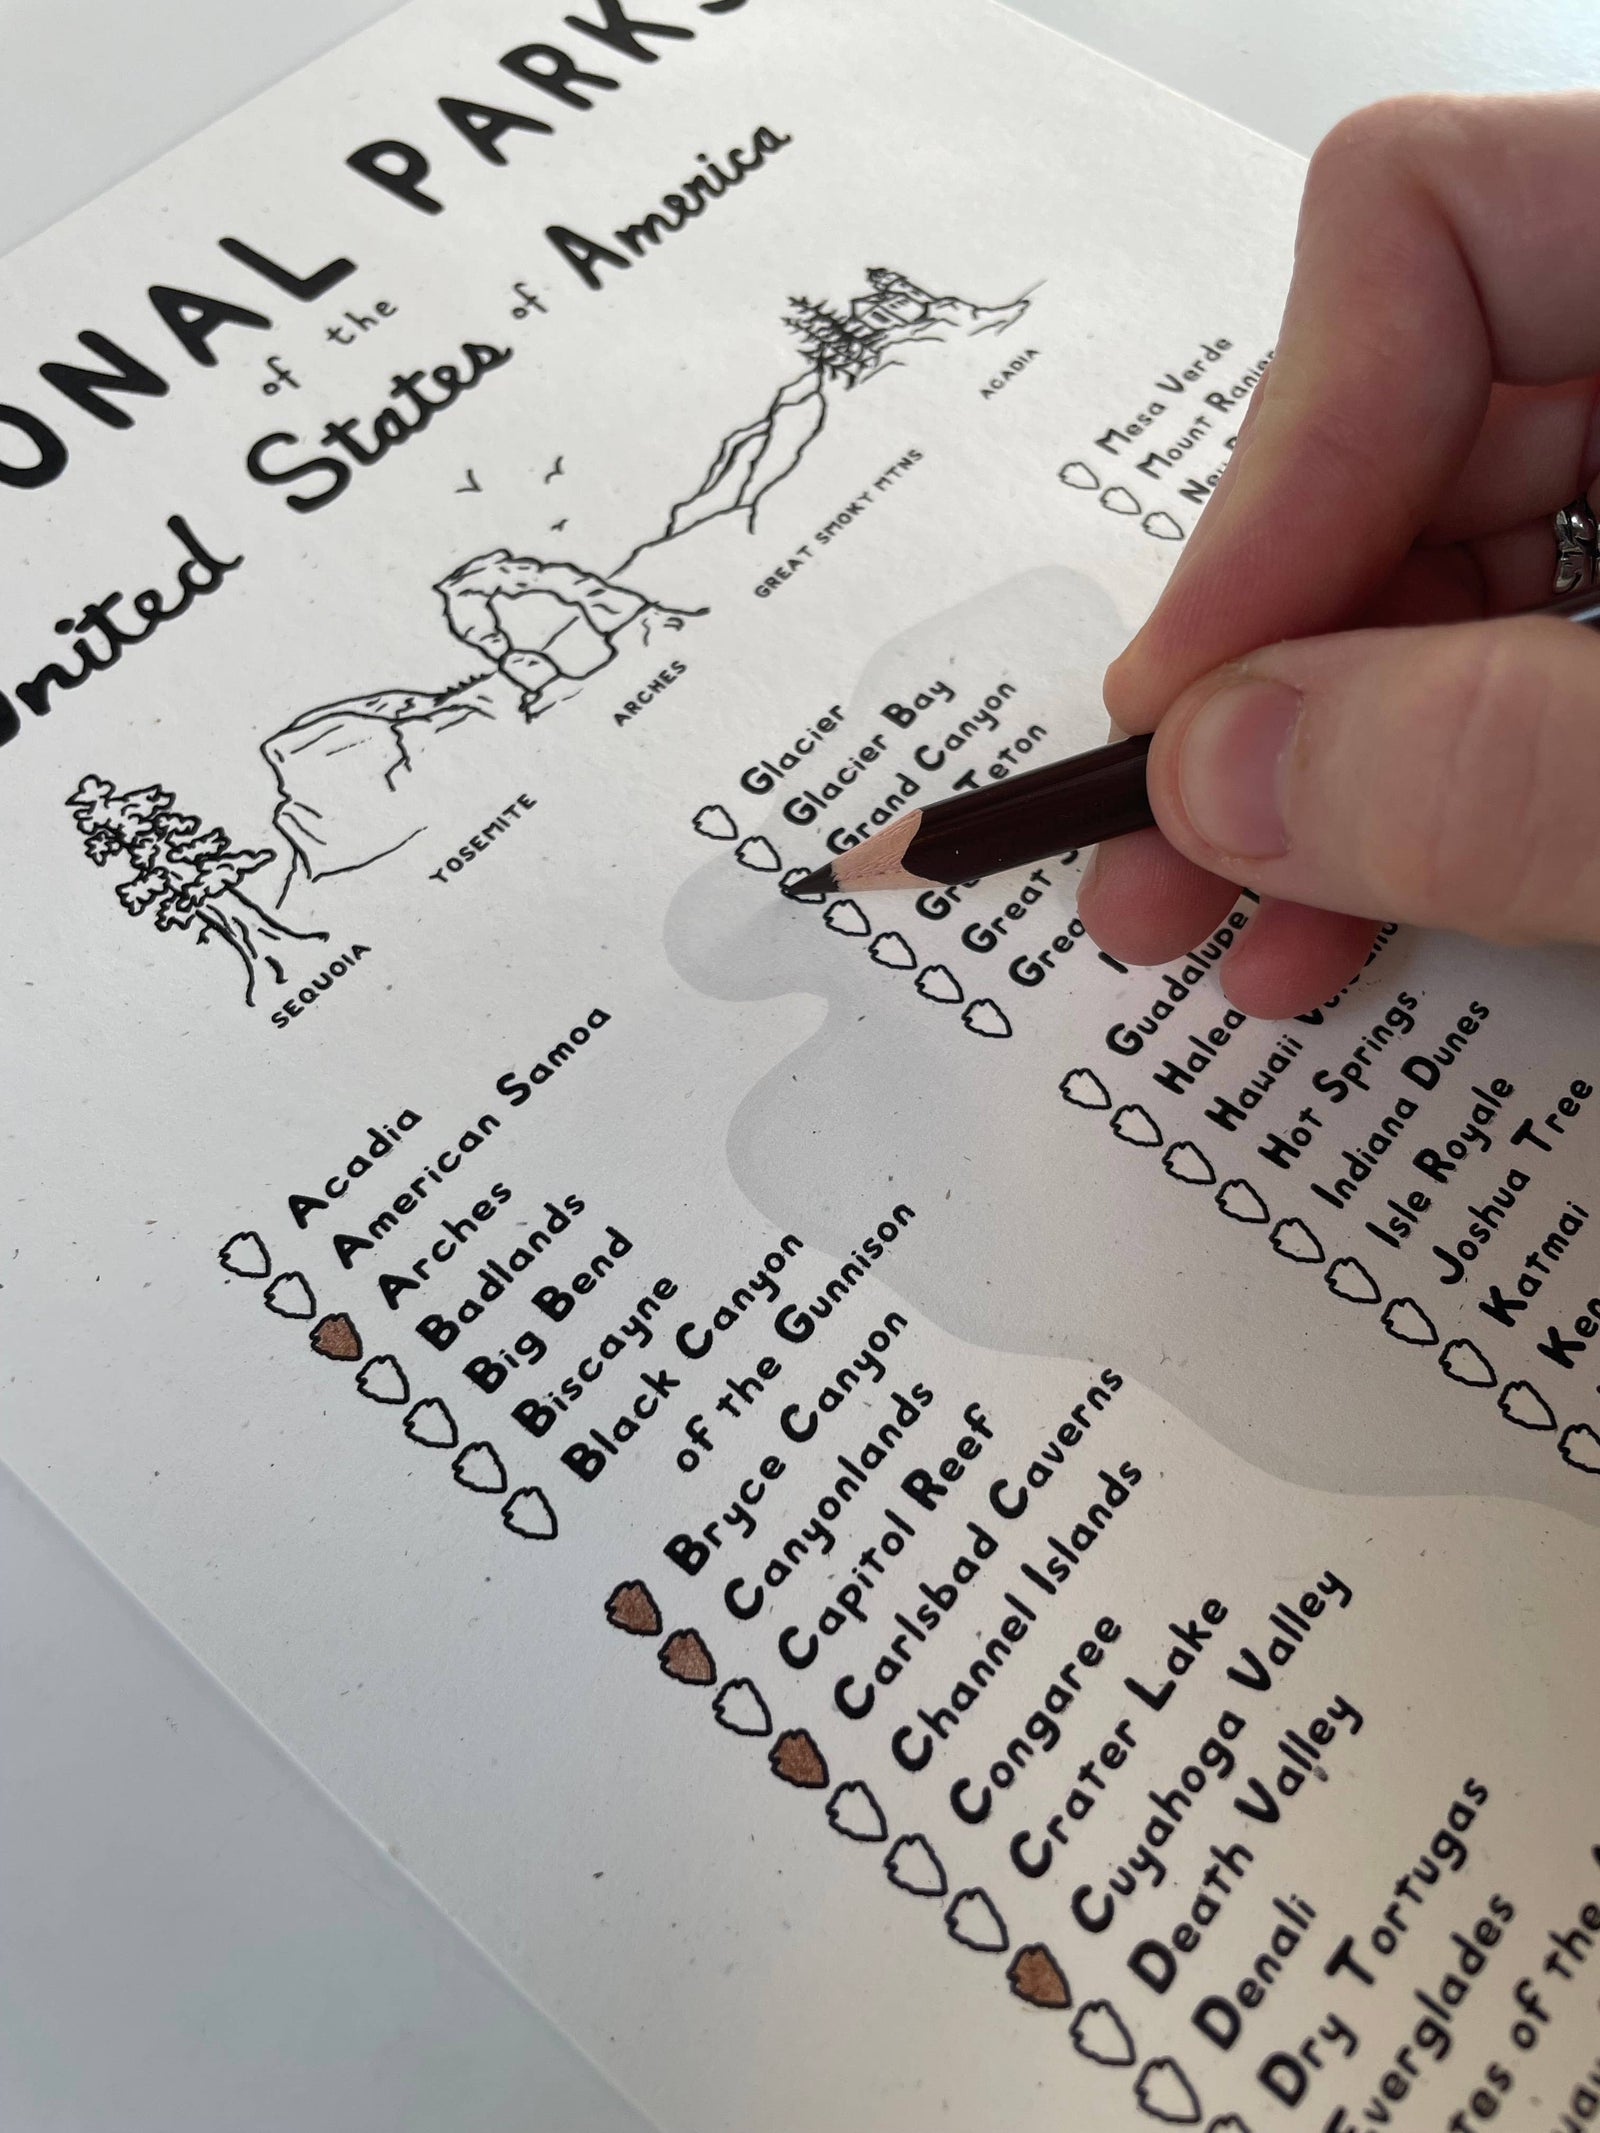 PARKS
of the
United States of America
ACADIA
GREAT SMOKY MTNS
ARCHES
YOSEMITE
SEQUOIA
Acadia
American Samoa
Arches
Badlands
Big Bend
Biscayne
Black Canyon
of the Gunnison
Bryce Canyon
Canyonlands
Capitol Reef
Carlsbad Caverns
Channel Islands
Congaree
Crater Lake
Cuyahoga Valley
Death Valley
Denali
Dry Tortugas
Everglades
of the
Glacier
Glacier Bay
Grand Canyon
Teton
Great
Guadalupe
Hawaii
Hot Springs
Indiana Dunes
Isle Royale
Joshua Tree
Katmai
Mesa Verde
Mount